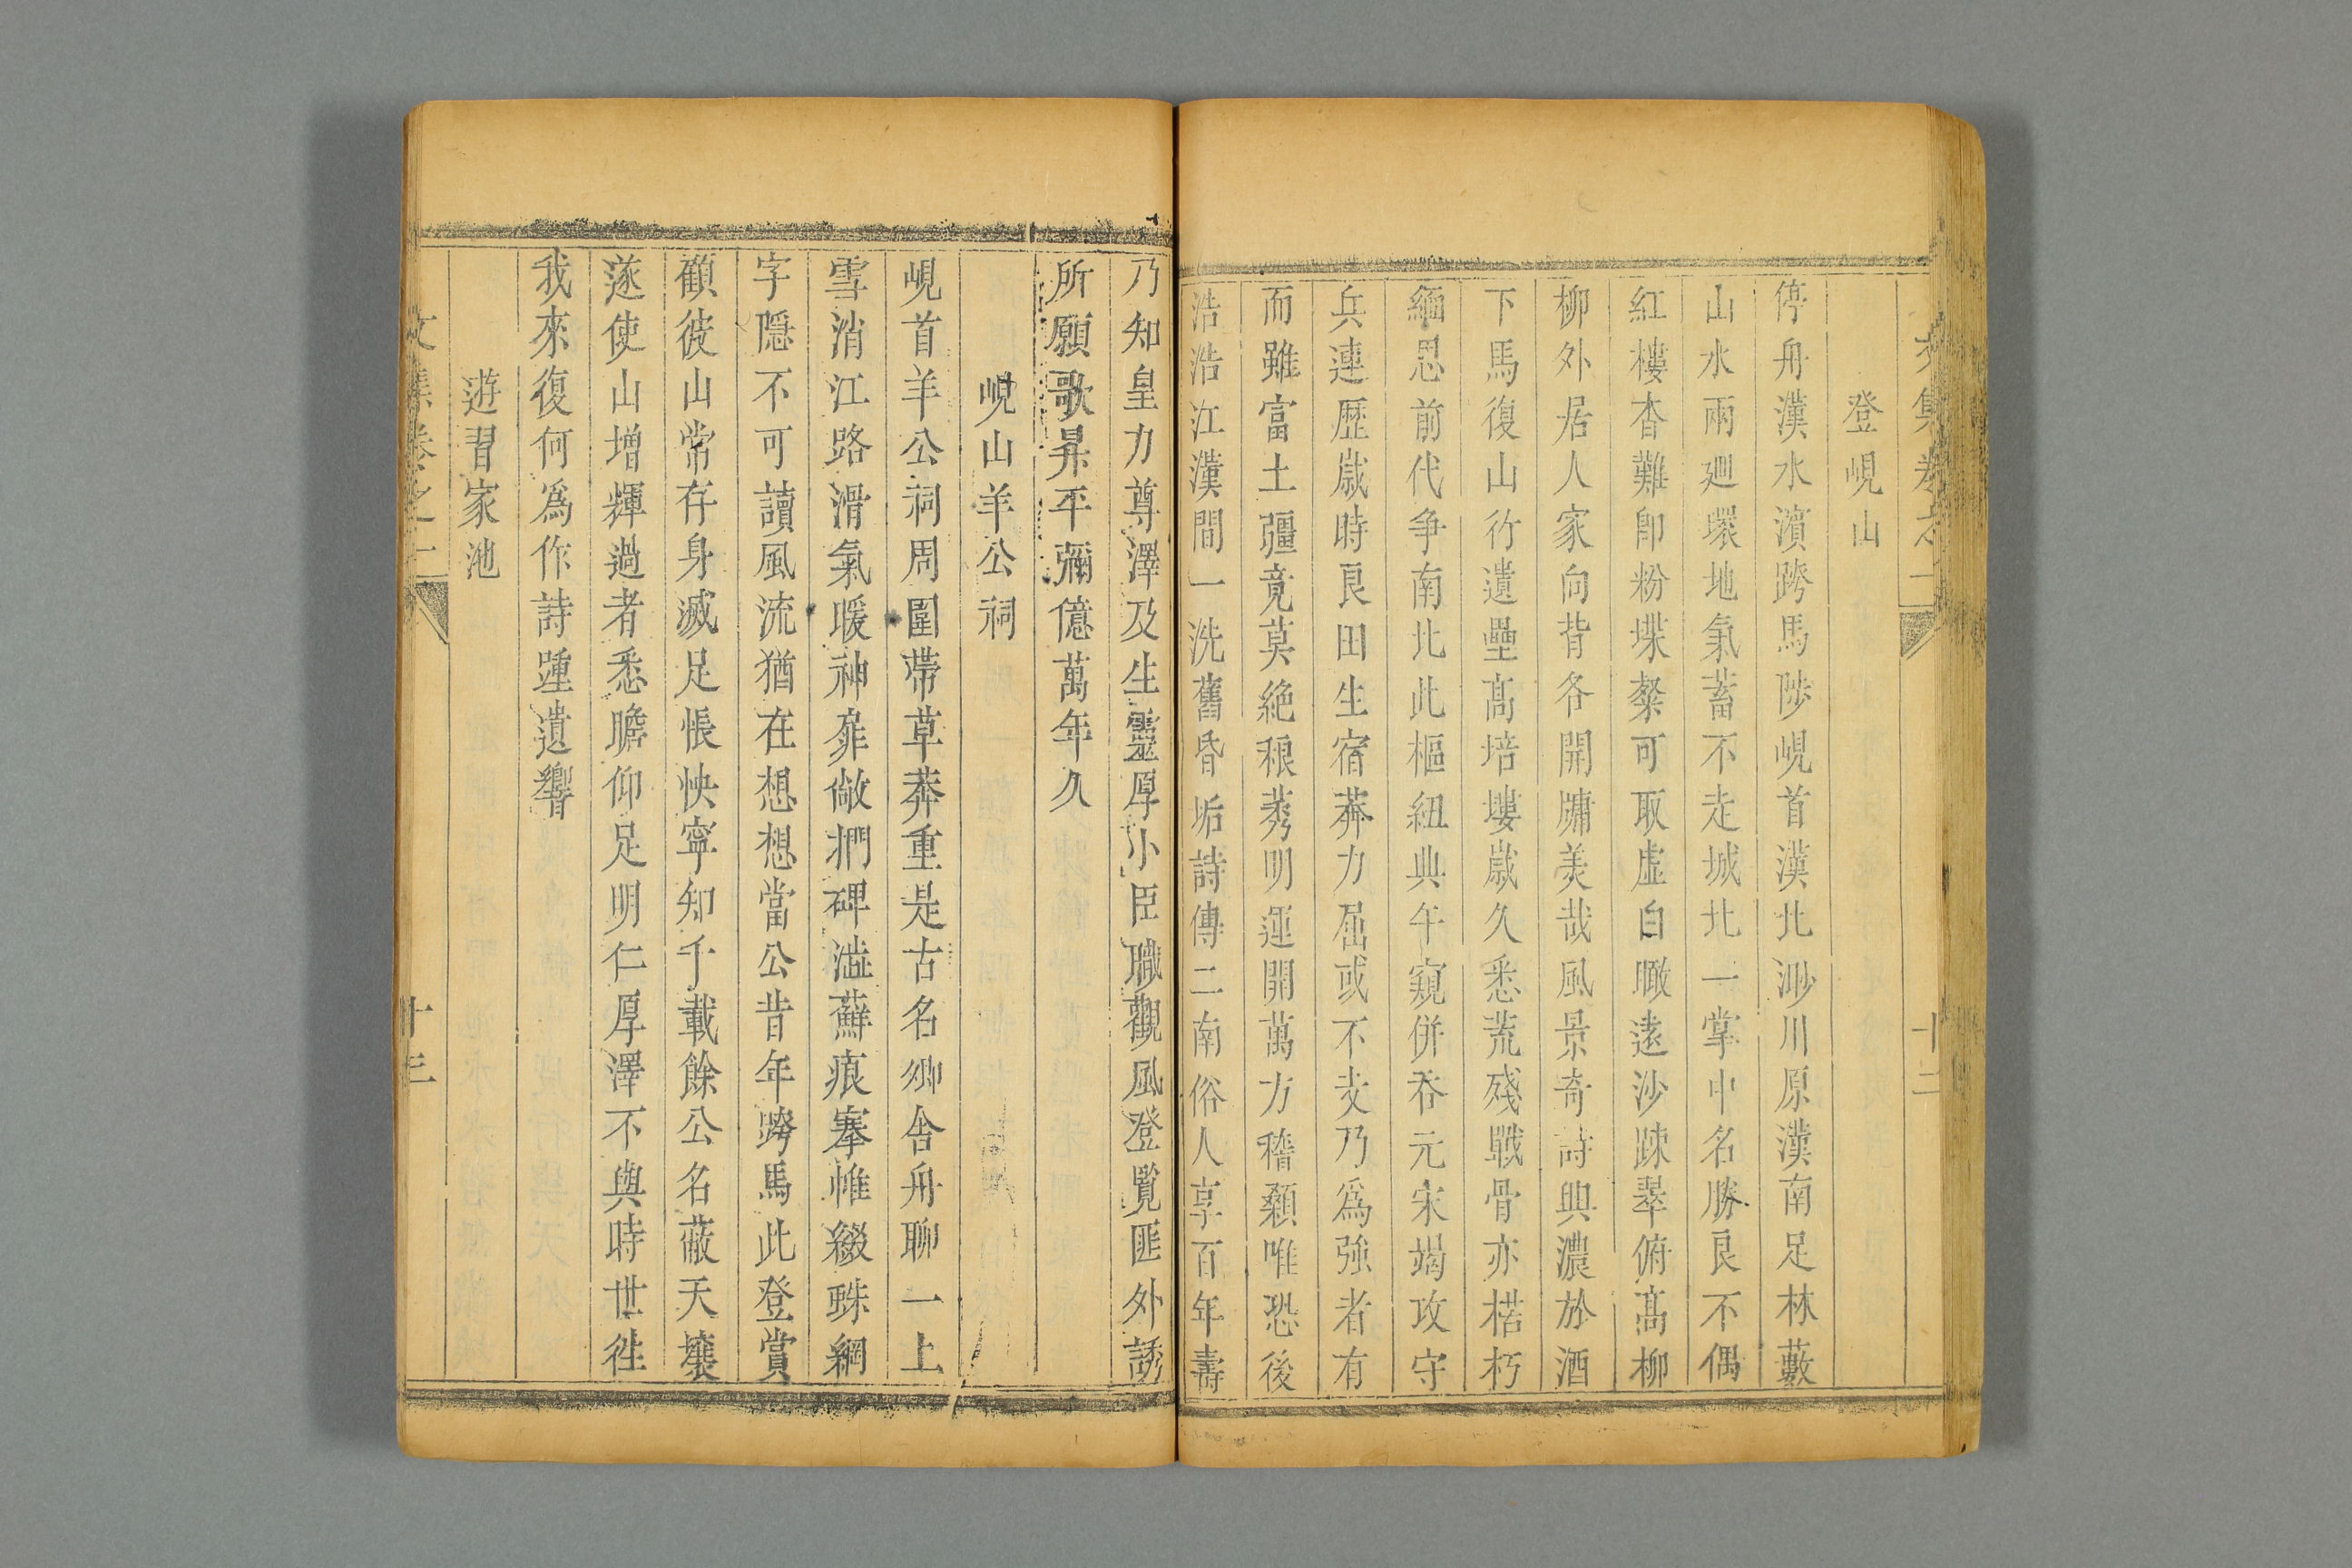 登峴山
停舟漢水濱跨馬陟峴首漢北渺川原漢南足林藪
山水兩廻環地氣蓄不走城北一掌中名勝良不偶
紅樓杳難即粉堞粲可取虛白瞰遠沙踈翠俯髙柳
柳外居人家向背各開牗美哉風景奇詩興濃於酒
下馬復山行遺壘髙培塿歲久悉荒殘戰骨亦楛朽
緬思前代爭南北此樞紐典午窺併吞元宋竭攻守
兵連歴歲時良田生宿莽力屈或不支乃為強者有
而雖富土疆竟莫絶稂莠明運開萬方稽顙唯恐後
浩浩江漢間一洗舊昏垢詩傳二南俗人享百年壽
乃知皇力尊澤及生靈厚小臣職觀風登覽匪外誘
所願歌昇平彌億萬年久
峴山羊公祠
峴首羊公祠周圍帶草莽重是古名卿舍舟聊一上
雪消江路滑氣暖神扉敞捫碑澁蘚痕搴帷綴蛛網
字隱不可讀風流猶在想想當公昔年跨馬此登賞
顧彼山常存身滅足悵怏寧知千載餘公名蔽天壤
遂使山增輝過者悉瞻仰足明仁厚澤不與時世徃
我來復何為作詩踵遺響
遊習家池
文集卷之二
十三